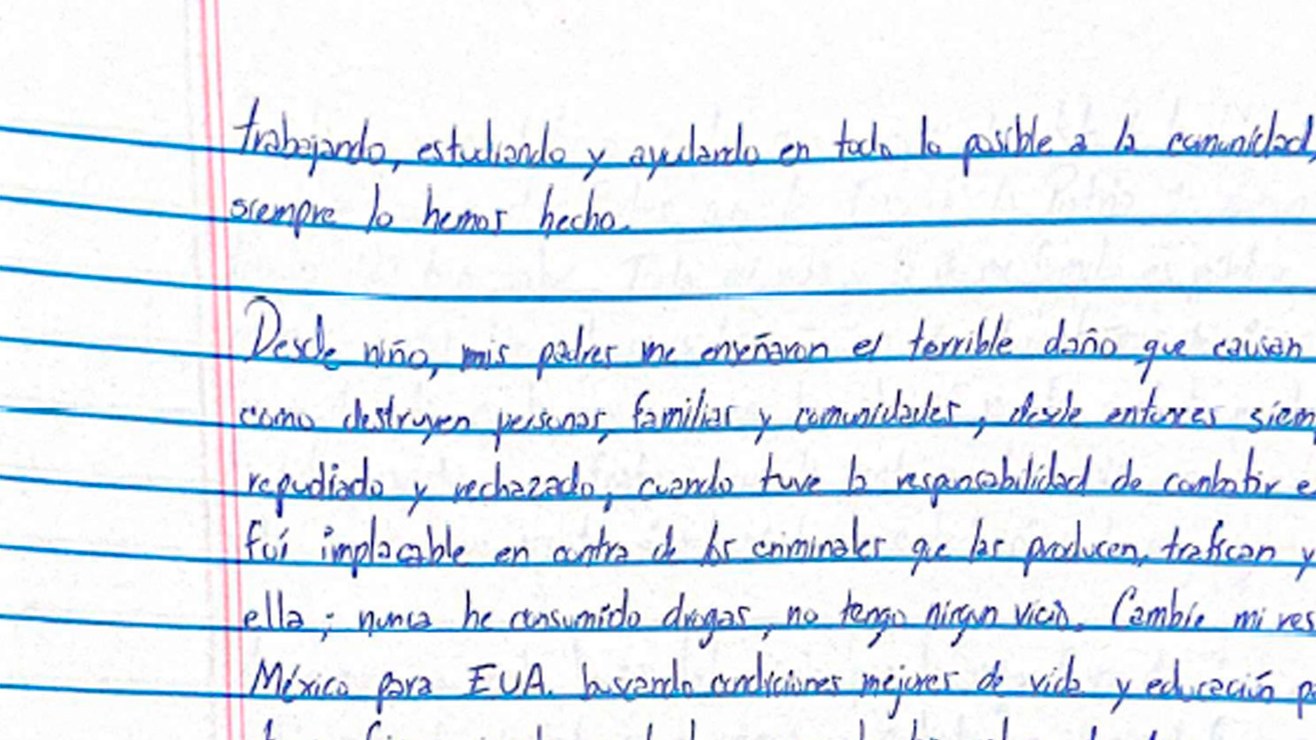 trabajando, estudiando y ayudando en todo lo posible a la comunidad,
siempre lo hemos hecho.
Desde niño, mis padres me enseñaron el terrible daño que causan
como destruyen personas, familias y comunidades, desde entonces siem
repudiado y rechazado, cuando tuve la responsabilidad de combatir e
fui implacable en contra de los criminales que las producen, trafican y
ella; nunca he consumido drogas, no tengo ningun vicio. Cambie mi res
México para EUA. buscando condiciones mejores de vida y educación p